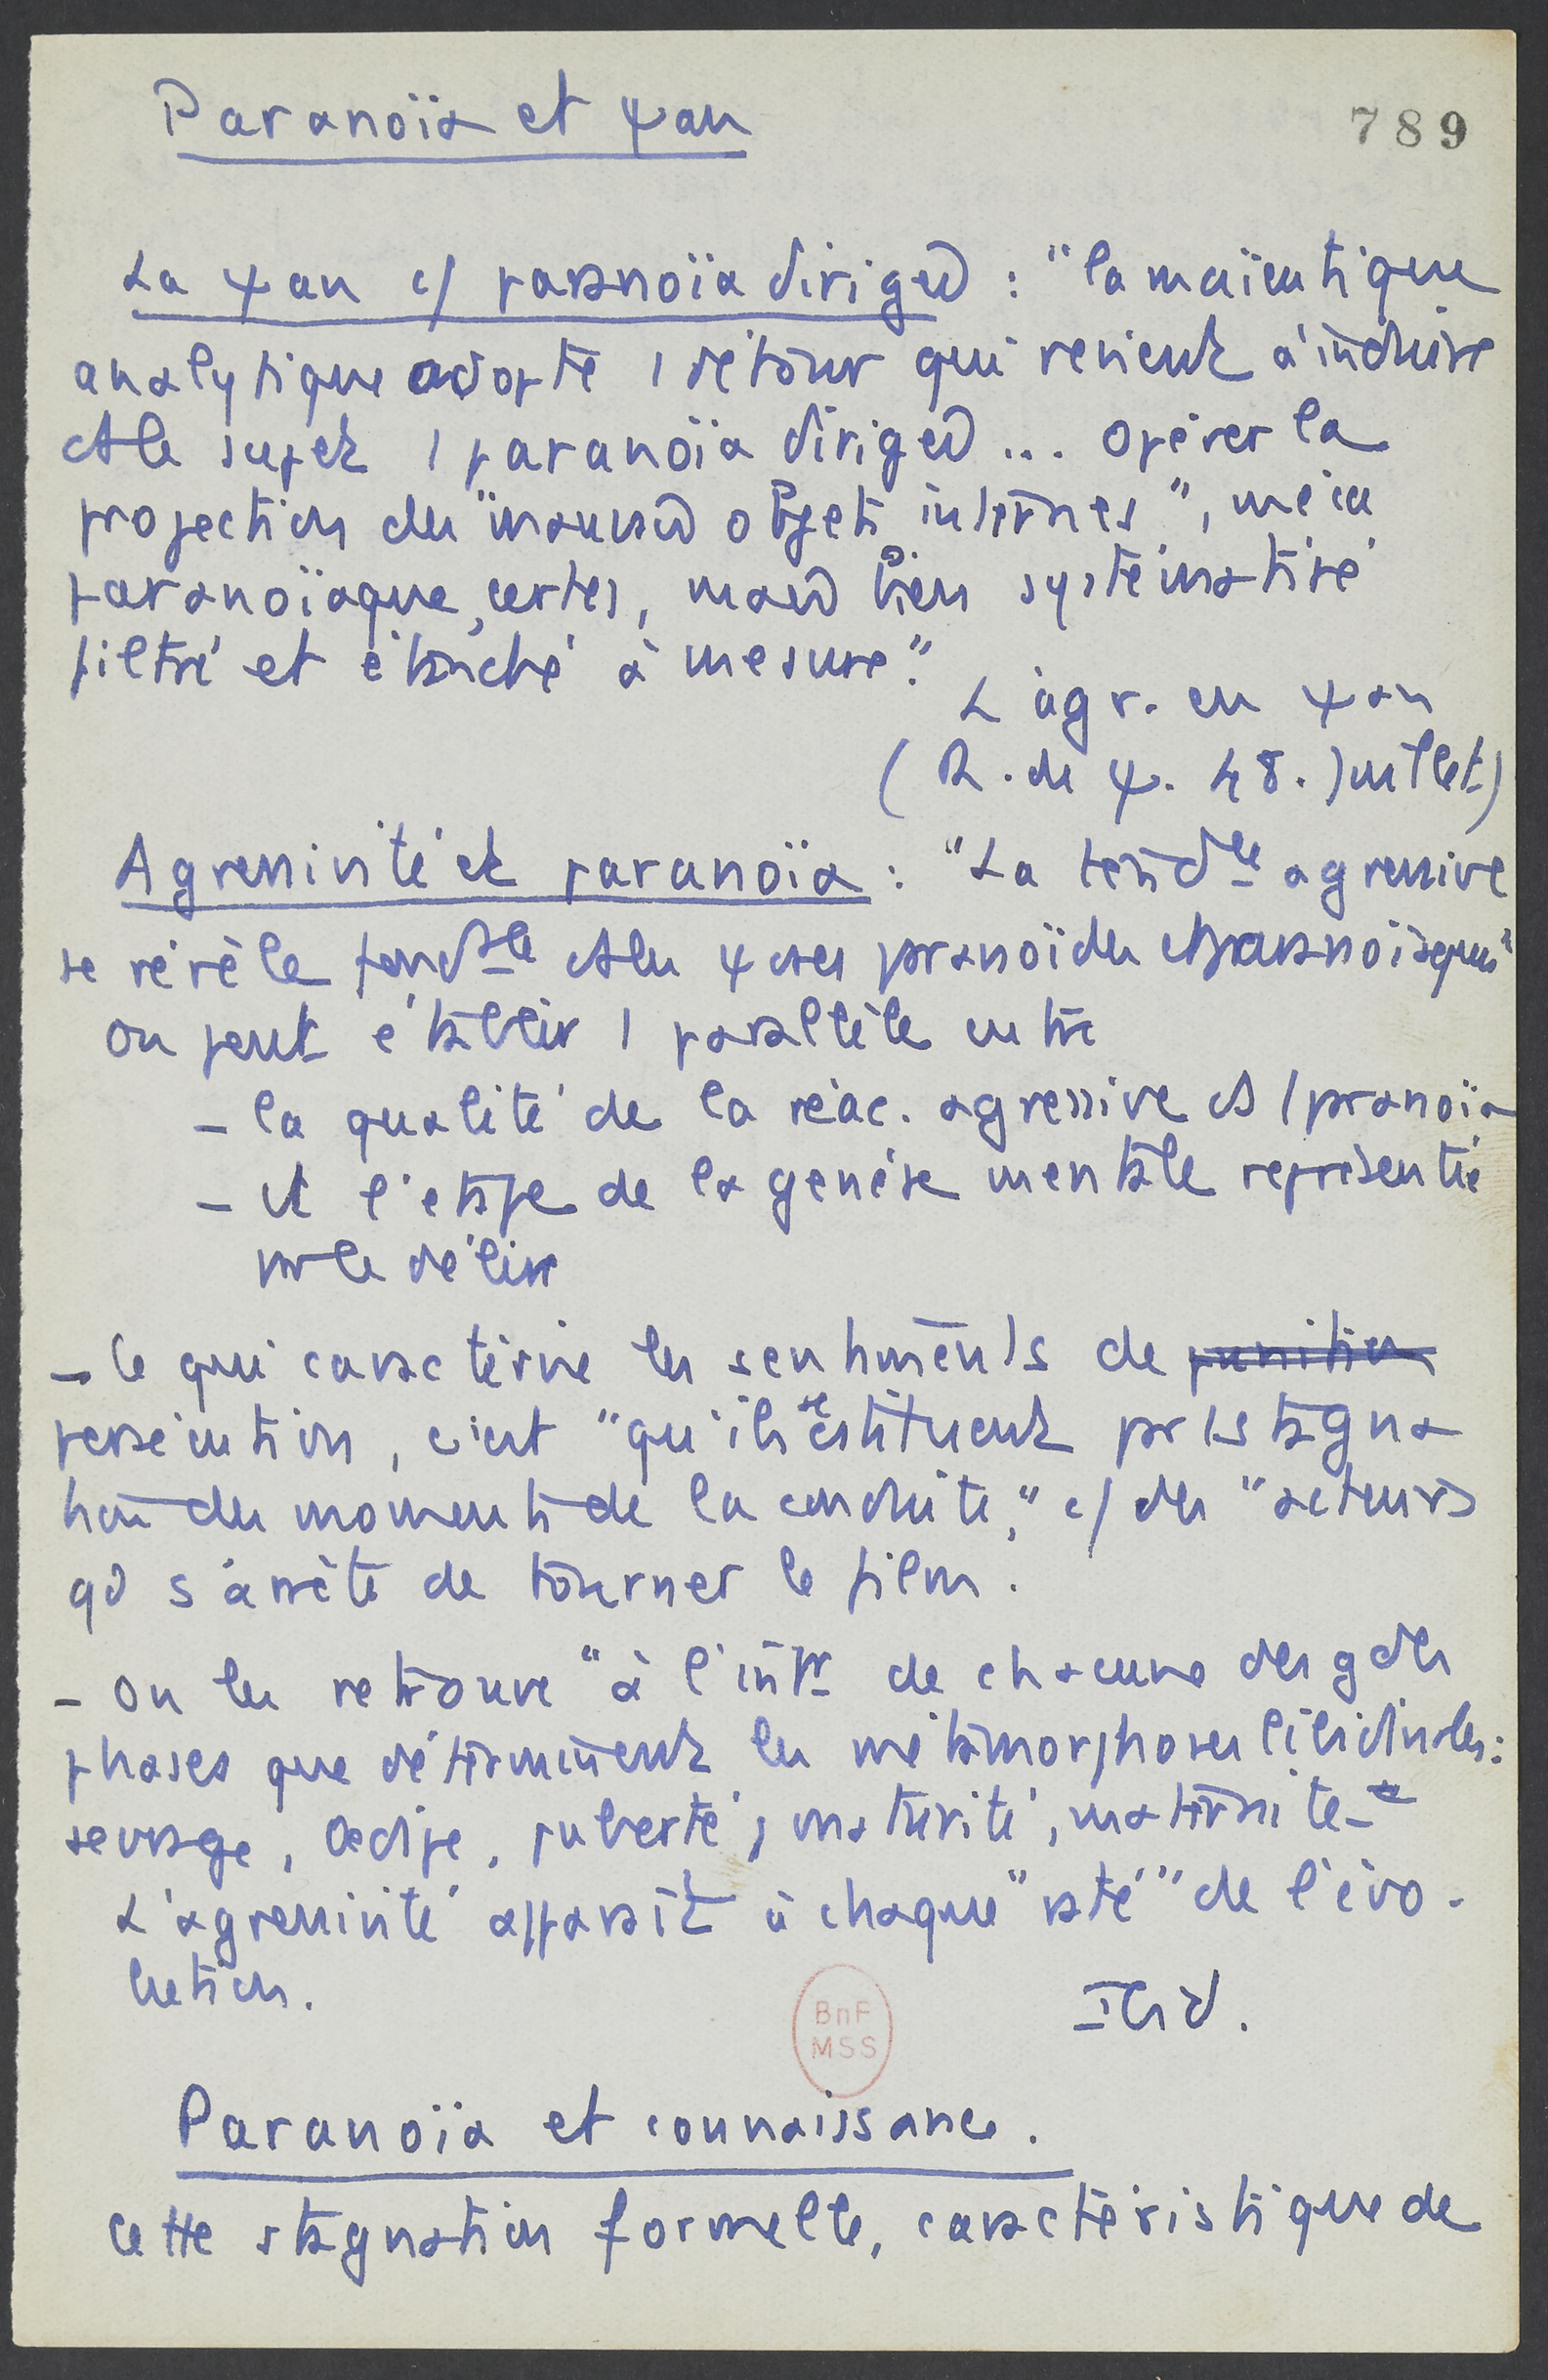 Paranoïa et ψan
789
La ψan c/ paranoïa dirigée : "la maïeutique
analytique adopte 1 détour qui revient à induire
ds le sujet 1 paranoïa dirigée ... opérer la
projection des "mauvais objets internes", méca
paranoïaque, certes, mais bien systématisé
filtré et étanché à mesure".
L'agr. en ψan
(R. de ψ. 48. Juillet)
Agressivité et paranoïa : "La tendce agressive
se révèle fondle ds les ψoses pranoïdes et paranoïaques"
on peut établir 1 parallèle entre
- la qualité de la réac. agressive ds 1 pranoïa
- et l'étape de la genèse mentale représentée
pr le délire
- ce qui caractérise les sentiments de punition
persécution, c'est "qu'ils se cstituent pr 1 stagna
tion des moments de la conduite", c/ des "acteurs
qd s'arrête de tourner le film.
- On les retrouve "à l'intr de chacune des gdes
phases que déterminent les métamorphoses libidinales :
sevrage, Œdipe, puberté, maturité, maternité
L'agressivité apparaît à chaque "raté" de l'évo-
lution.
Ibid.
BnF
MSS
Paranoïa et connaissance.
Cette stagnation formelle, caractéristique de